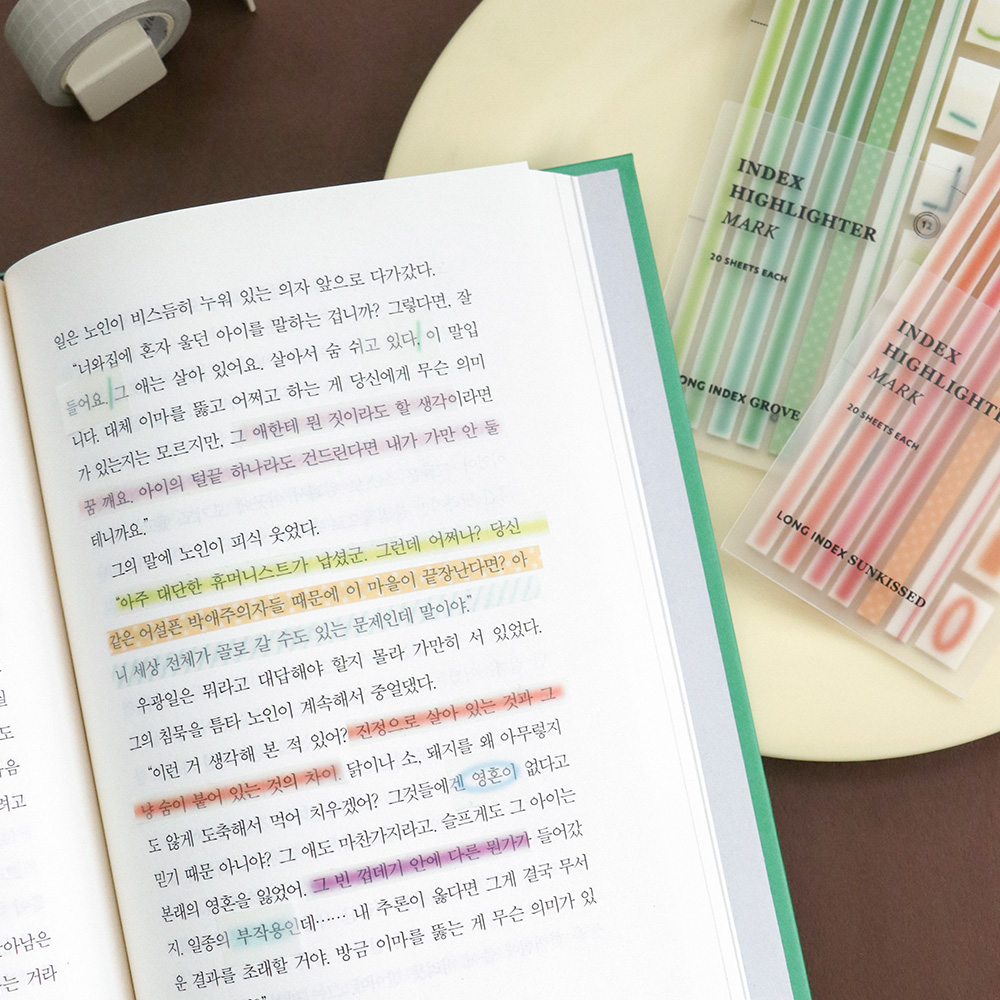 일은 노인이 비스듬히 누워 있는 의자 앞으로 다가갔다.
“너와집에 혼자 울던 아이를 말하는 겁니까? 그렇다면, 잘
들어요. 그 애는 살아 있어요. 살아서 숨 쉬고 있다. 이 말입
니다. 대체 이마를 뚫고 어쩌고 하는 게 당신에게 무슨 의미
가 있는지는 모르지만, 그 애한테 뭔 짓이라도 할 생각이라면
꿈 깨요. 아이의 털끝 하나라도 건드린다면 내가 가만 안 둘
테니까요.”
그의 말에 노인이 피식 웃었다.
“아주 대단한 휴머니스트가 납셨군. 그런데 어쩌나? 당신
같은 어설픈 박애주의자들 때문에 이 마을이 끝장난다면? 아
니 세상 전체가 골로 갈 수도 있는 문제인데 말이야.”
우광일은 뭐라고 대답해야 할지 몰라 가만히 서 있었다.
그의 침묵을 틈타 노인이 계속해서 중얼댔다.
“이런 거 생각해 본 적 있어? 진정으로 살아 있는 것과 그
냥 숨이 붙어 있는 것의 차이. 닭이나 소, 돼지를 왜 아무렇지
도 않게 도축해서 먹어 치우겠어? 그것들에겐 영혼이 없다고
믿기 때문 아니야? 그 애도 마찬가지라고. 슬프게도 그 아이는
본래의 영혼을 잃었어. 그 빈 껍데기 안에 다른 뭔가가 들어갔
지. 일종의 부작용인데…… 내 추론이 옳다면 그게 결국 무서
운 결과를 초래할 거야. 방금 이마를 뚫는 게 무슨 의미가 있
도
려고
는 거라
INDEX
HIGHLIGHTER
MARK
20 SHEETS EACH
12
LONG INDEX GROVE
INDEX
HIGHLIGHTE
MARK
20 SHEETS EACH
LONG INDEX SUNKISSED